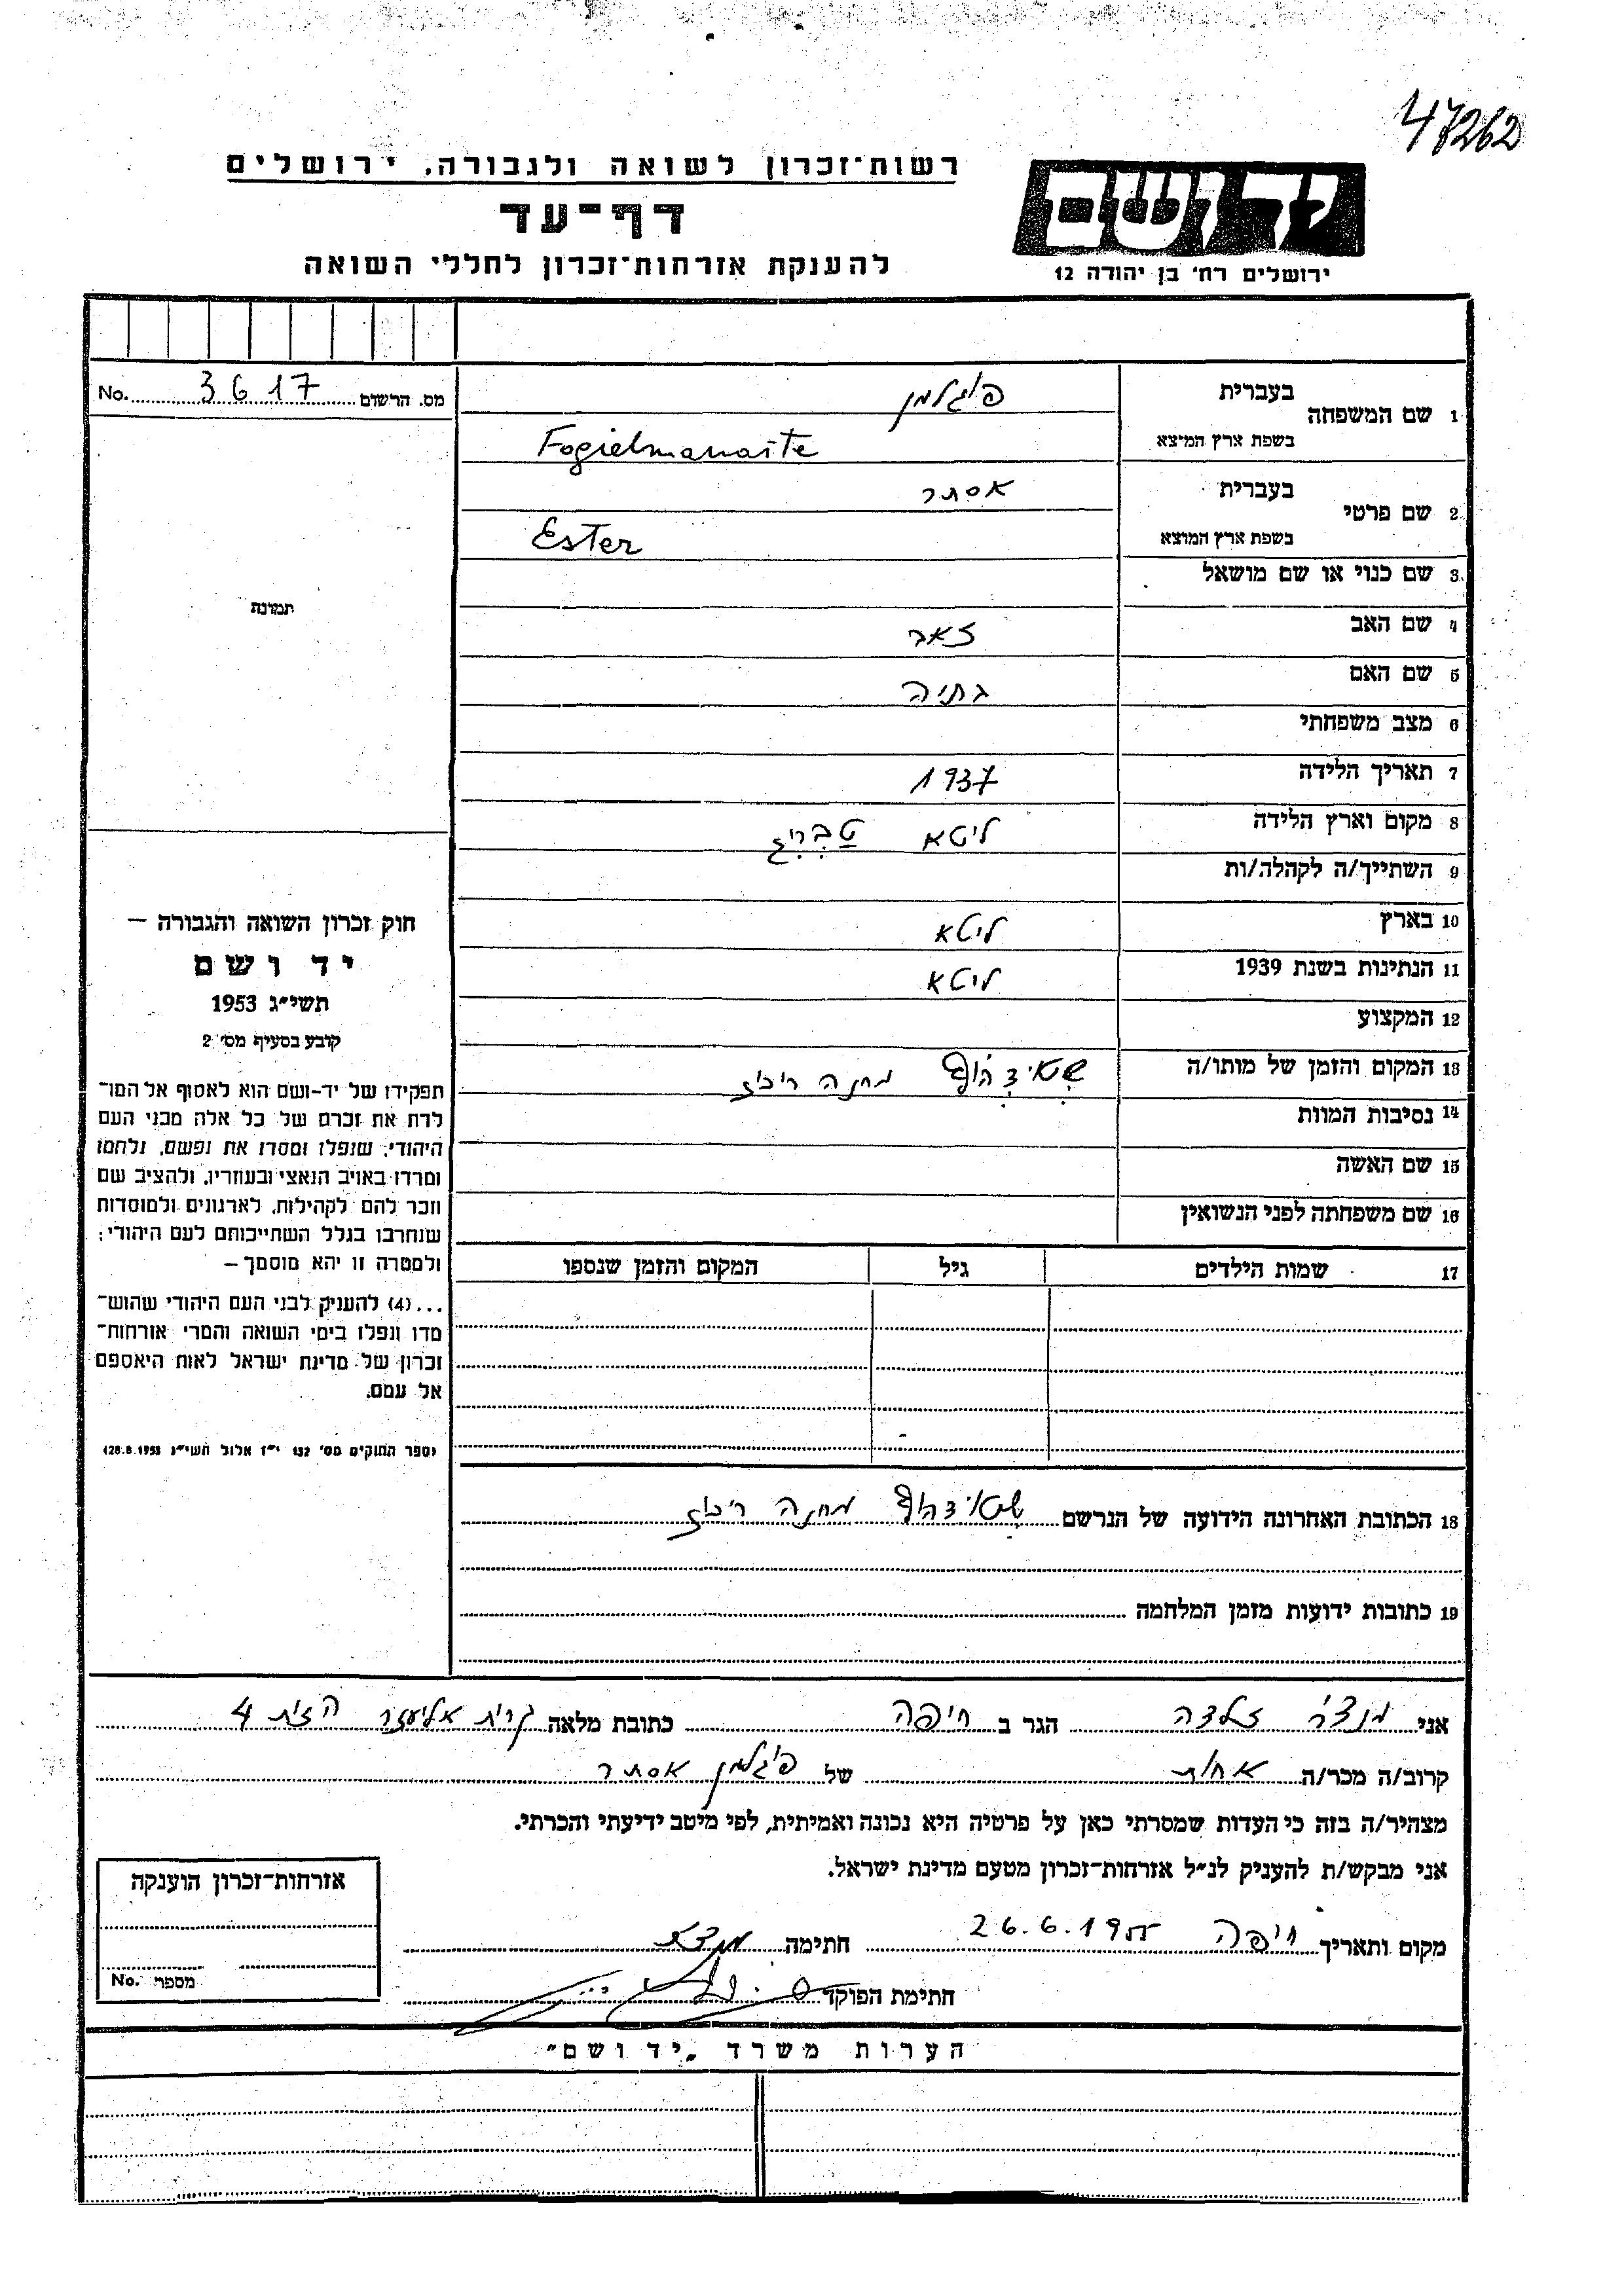 47262
רשות־זכרון לשואה ולגבורה, ירושלים
דף־עד
להענקת אזרחות־זכרון לחללי השואה
יד ושם
ירושלים רח' בן יהודה 12
מס. הרשום 3617 No.
1 שם המשפחה
בעברית פיגלמן
בשפת ארץ המוצא Fogielmanaite
2 שם פרטי
בעברית אסתר
בשפת ארץ המוצא Ester
3 שם כנוי או שם מושאל
4 שם האב זאב
5 שם האם בתיה
6 מצב משפחתי
7 תאריך הלידה 1937
8 מקום וארץ הלידה ליטא טבריג
9 השתייך/ה לקהלה/ות
10 בארץ ליטא
11 הנתינות בשנת 1939 ליטא
12 המקצוע
13 המקום והזמן של מותו/ה שטאיצהוף מחנה ריכוז
14 נסיבות המוות
15 שם האשה
16 שם משפחתה לפני הנשואין
17 שמות הילדים גיל המקום והזמן שנספו
תמונה
חוק זכרון השואה והגבורה –
יד ושם
תשי״ג 1953
קובע בסעיף מס' 2
תפקידו של יד-ושם הוא לאסוף אל המו־
לדת את זכרם של כל אלה מבני העם
היהודי, שנפלו ומסרו את נפשם, נלחמו
ומרדו באויב הנאצי ובעוזריו, ולהציב שם
וזכר להם לקהילות, לארגונים ולמוסדות
שנחרבו בגלל השתייכותם לעם היהודי;
ולמטרה זו יהא מוסמך –
...(4) להעניק לבני העם היהודי שהוש־
מדו ונפלו בימי השואה והמרי אזרחות־
זכרון של מדינת ישראל לאות היאספם
אל עמם.
(ספר החוקים מס' 132 י״ז אלול תשי״ג 28.8.1953)
18 הכתובת האחרונה הידועה של הנרשם שטאיצהוף מחנה ריכוז
19 כתובות ידועות מזמן המלחמה
אני מנצ'ר זלדה הגר ב חיפה כתובת מלאה קרית אליעזר הזית 4
קרוב/ה מכר/ה אחות של פיגלמן אסתר
מצהיר/ה בזה כי העדות שמסרתי כאן על פרטיה היא נכונה ואמיתית, לפי מיטב ידיעתי והכרתי.
אני מבקש/ת להעניק לנ״ל אזרחות-זכרון מטעם מדינת ישראל.
מקום ותאריך חיפה 26.6.1955 חתימה
חתימת הפוקד
אזרחות־זכרון הוענקה
מספר No.
הערות משרד „יד ושם״